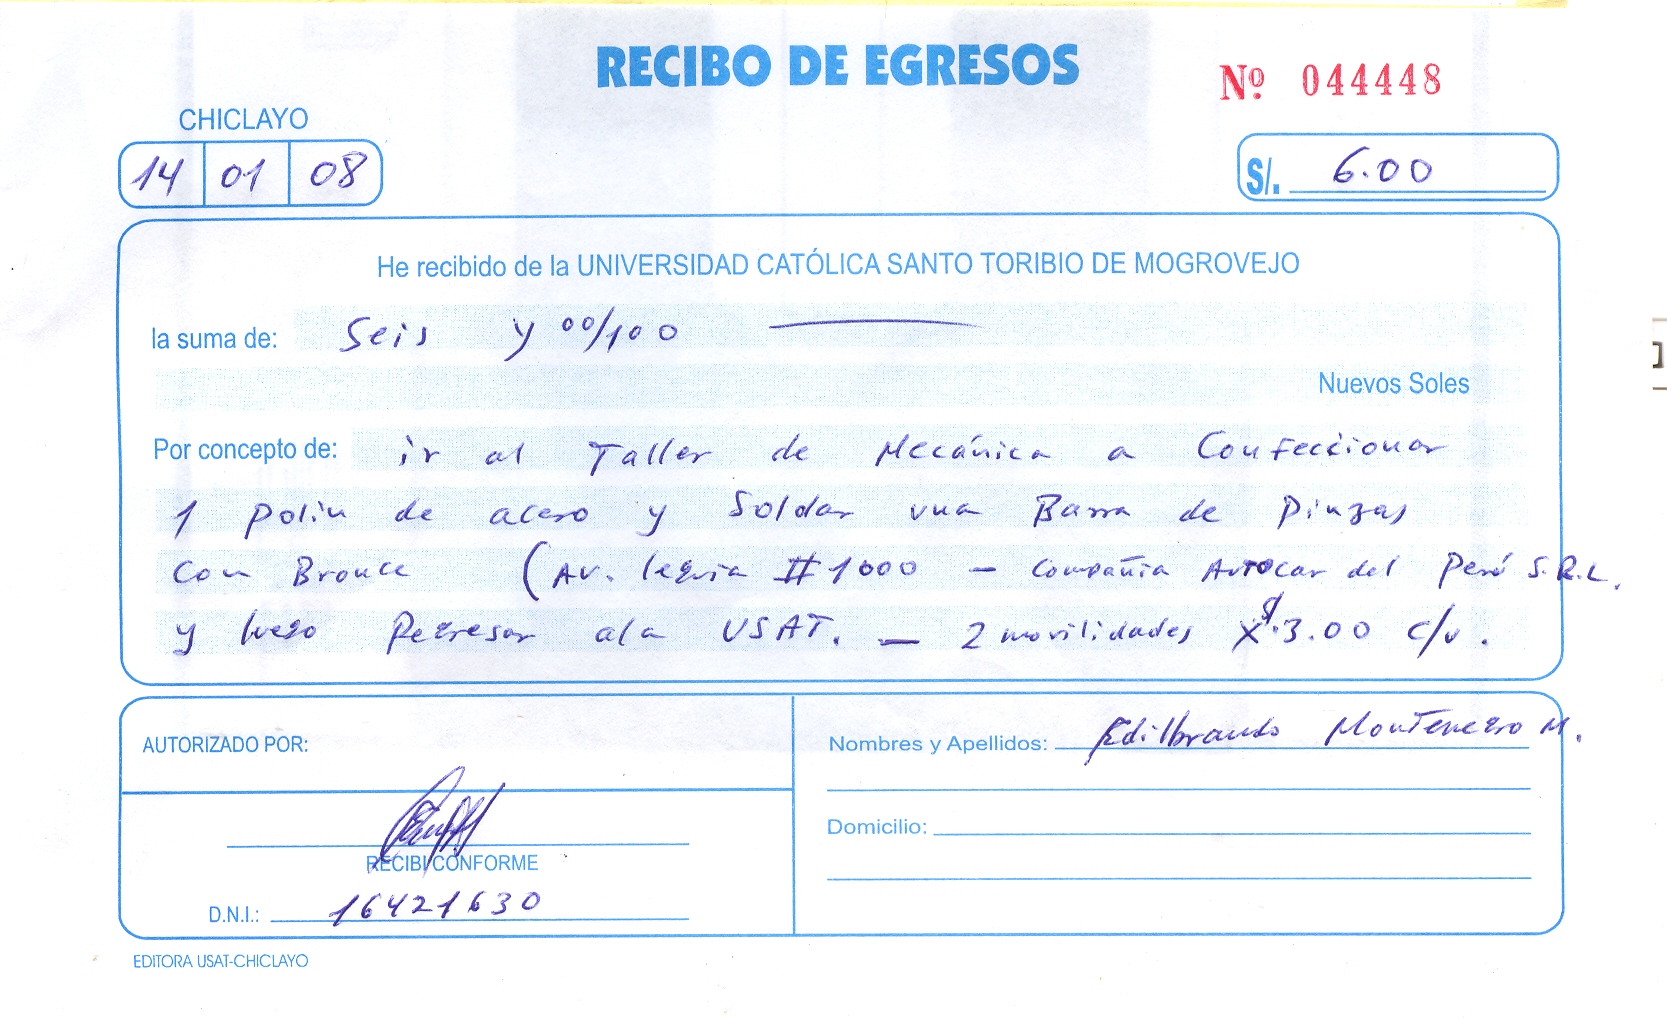 RECIBO DE EGRESOS
Nº 044448
CHICLAYO
14 01 08
S/. 6.00
He recibido de la UNIVERSIDAD CATÓLICA SANTO TORIBIO DE MOGROVEJO
la suma de: Seis y 00/100
Nuevos Soles
Por concepto de: ir al Taller de Mecánica a Confeccionar
1 polin de acero y Soldar una Barra de Pinzas
Con Bronce (Av. leguia #1000 - Compañia Autocar del Perú S.R.L.
y luego Regresar a la USAT. - 2 movilidades x 3.00 c/u.
AUTORIZADO POR:
Nombres y Apellidos: Edilbrando Montenegro M.
Domicilio:
RECIBI CONFORME
D.N.I.: 16421630
EDITORA USAT-CHICLAYO